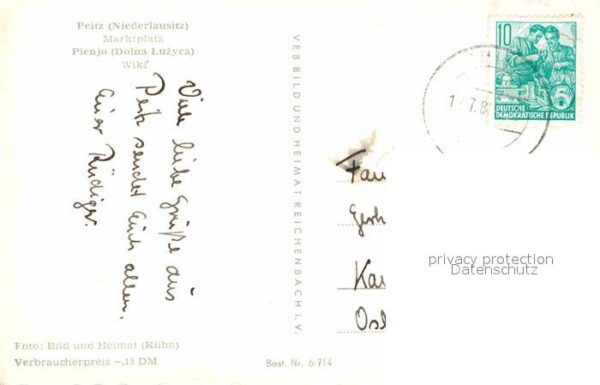 Peitz (Niederlausitz)
Marktplatz
Picnjo (Dolna Łužyca)
Wiki
Viele liebe Grüße aus
Peitz sendet Euch allen,
Euer Rüdiger.
Foto: Bild und Heimat (Kühn)
Verbraucherpreis –,15 DM
VEB BILD UND HEIMAT REICHENBACH I. V.
Best. Nr. 6/714
10
DEUTSCHE
DEMOKRATISCHE REPUBLIK
Fam
Gerh
Kar
privacy protection
Datenschutz